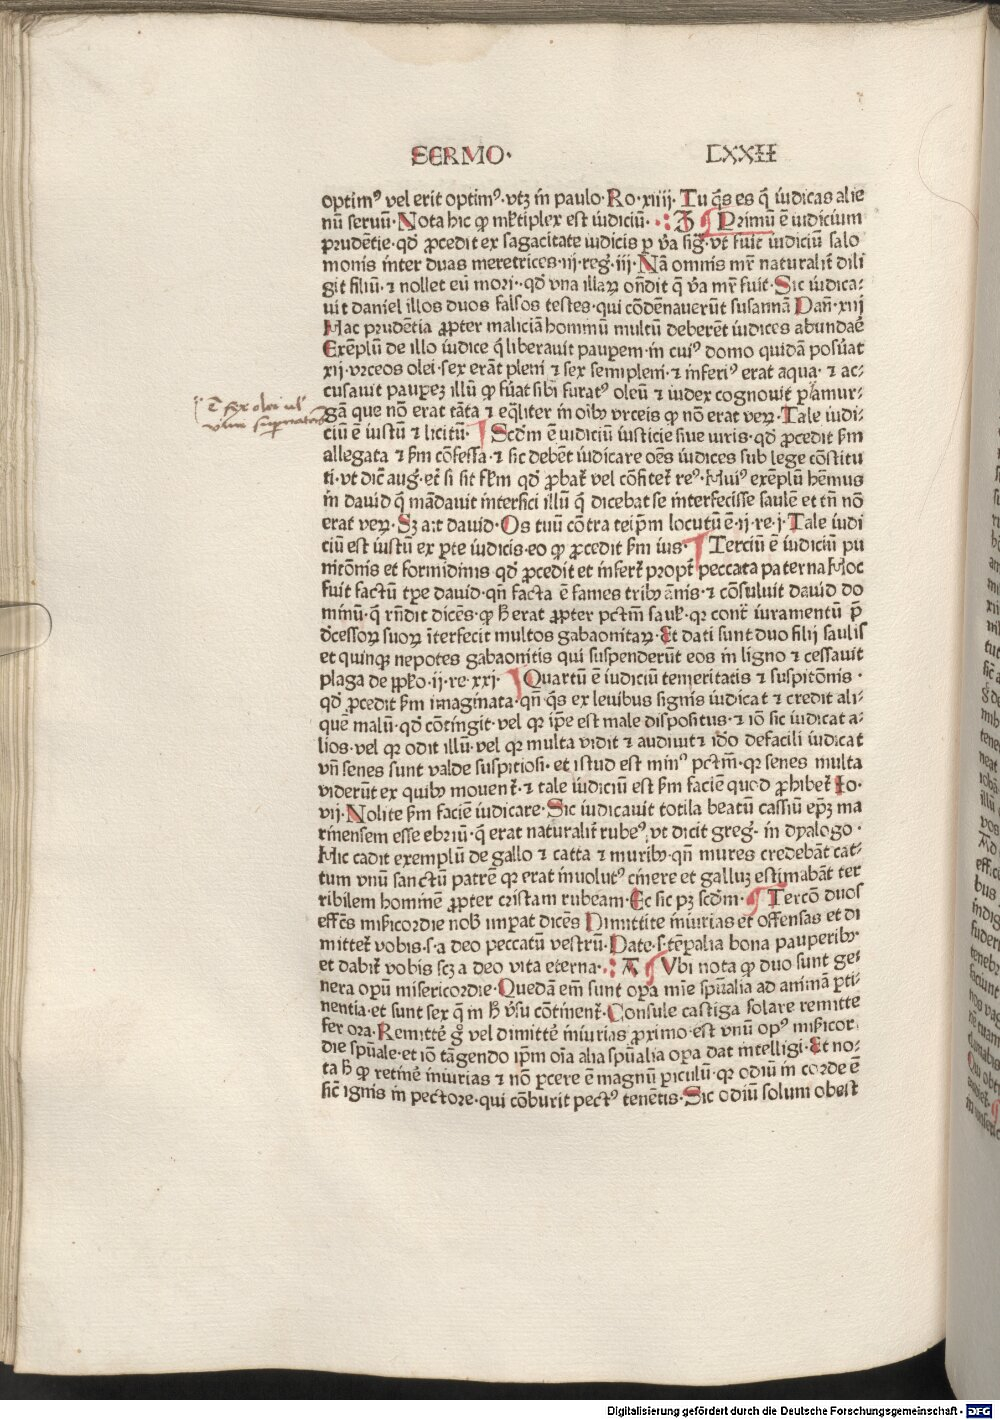 SERMO· LXXII
optimꝰ vel erit optimꝰ·vtꝫ in paulo·Ro·xiiij·Tu q̄s es q̄ iudicas alie
nū seruū·Nota hic ꝙ mĺtiplex est iudiciū· Primū ē iudicium
prudētie·qđ ꝓcedit ex sagacitate iudicis ꝑ v̄a siḡ·vt fuit iudiciū salo
monis inter duas meretrices·iij·reg̃·iij·Nā omnis mr̄ naturalit̃ dili
git filiū·⁊ nollet eū mori··qđ vna illaꝝ on̄dit q̄ v̄a mr̄ fuit·Sic iudica⸗
uit daniel illos duos falsos testes·qui cōdēnauerūt susannā Dan̄·xiij
Hac prudētia ꝓpter maliciā hominū multū deberēt iudices abundaē
Exēplū de illo iudice q̄ liberauit pauꝑem·in cuiꝰ domo quidā posūat
xij·vrceos olei·sex erāt pleni ⁊ sex semipleni·⁊ inferiꝰ erat aqua·⁊ ac⸗
cusauit pauꝑeꝫ illū ꝙ fūat sibi furatꝰ oleū ⁊ iudex cognouit ꝑ amur⸗
gā que nō erat tāta ⁊ eq̄liter in oībꝰ vrceis ꝙ nō erat veꝝ·Tale iudi⸗
ciū ē iustū ⁊ licitū· Scd̄m ē iudiciū iusticie siue iuris·qđ ꝓcedit ẜm
allegata ⁊ ẜm cōfessa·⁊ sic debēt iudicare oēs iudices sub lege cōstitu
ti·vt dic̄ aug̃·et̄ si sit fĺm qđ ꝓbat̃ vel cōfitet̃ reꝰ·Huiꝰ exēplū hēmus
in dauid q̄ mādauit interfici illū q̄ dicebat se interfecisse saulē et tn̄ nō
erat veꝝ·Sꝫ ait dauid·Os tuū cōtra teip̄m locutū ē·ij·re·j·Tale iudi
ciū est iustū ex ꝑte iudicis·eo ꝙ ꝓcedit ẜm ius· Terciū ē iudiciū pu
nitōnis et formidinis qđ ꝓcedit et infert̃ propt̃ peccata paterna Hoc
fuit factū tꝑe dauid·qn̄ facta ē fames tribꝰ ānis·⁊ cōsuluit dauid do
minū·q̄ rn̄dit dicēs·ꝙ ħ erat ꝓpter pctm̄ sauĺ·qr cont̃ iuramentū p̄
dcessoꝝ suoꝝ īterfecit multos gabaonitaꝝ·Et dati sunt duo filij saulis
et quinqꝫ nepotes gabaonitis qui suspenderūt eos in ligno ⁊ cessauit
plaga de ꝓplo·ij·re·xxi· Quartū ē iudiciū temeritatis ⁊ suspitōnis·
qđ ꝓcedit ẜm imaginata·qn̄ q̄s ex leuibus signis iudicat ⁊ credit ali⸗
quē malū·qđ cōtingit·vel qr ip̄e est male dispositus·⁊ iō sic iudicat a⸗
lios·vel qr odit illū·vel qr multa vidit ⁊ audiuit ⁊ id̄o defacili iudicat
vn̄ senes sunt valde suspitiosi·et istud est minꝰ pctm̄·qr senes multa
viderūt ex quibꝰ mouent̃·⁊ tale iudiciū est ẜm faciē quod ꝓhibet̃ Jo·
vij·Nolite ẜm faciē iudicare·Sic iudicauit totila beatū cassiū ep̄ꝫ ma
rinensem esse ebriū·q̄ erat naturalit̃ rubeꝰ·vt dicit greg̃·in dyalogo·
Hic cadit exemplū de gallo ⁊ catta ⁊ muribꝰ·qn̄ mures credebāt cat⸗
tum vnū sanctū patrē qr erat inuolutꝰ cinere et galluꝫ estimabāt ter
ribilem hominē ꝓpter cristam rubeam·Ec sic pꝫ scd̄m· Tercō duos
effc̄s mīẜicordie nob̄ imꝑat dicēs Dimittite iniurias et offensas et di
mittet̃ vobis·s·a deo peccatū vestrū·Date·s·tēꝑalia bona pauperibꝰ·
et dabit̃ vobis scꝫ a deo vita eterna· A Vbi nota ꝙ duo sunt ge⸗
nera opeꝝ misericordie·Quedā em̄ sunt oꝑa mīe spūalia ad animā ꝑti⸗
nentia·et sunt sex q̄ in ħ v̄su cōtinent̃·Consule castiga solare remitte
fer ora·Remittē g̊ vel dimittē iniurias ꝓximo·est vnū opꝰ mīẜicor
die spūale·et iō tāgendo ip̄m oīa alia spūalia oꝑa dat intelligi·Et no⸗
ta ħ ꝙ retinē iniurias ⁊ nō ꝑcere ē magnū ꝑiculū·qr odiū in corde ē
sic̄ ignis in pectore·qui cōburit pectꝰ tenētis·Sic odiū solum obest
Digitalisierung gefördert durch die Deutsche Forschungsgemeinschaft - DFG